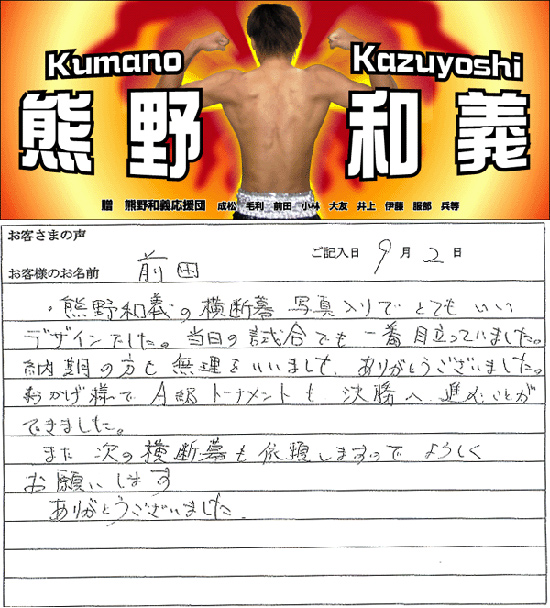 Kumano Kazuyoshi
熊野 和義
贈 熊野和義応援団 成松 毛利 前田 小林 大友 井上 伊藤 服部 兵等
お客さまの声
ご記入日 9月2日
お客様のお名前 前田
・熊野和義の横断幕 写真入りでとてもいい
デザインでした。当日の試合でも一番目立っていました。
納期の方も無理をいいました。ありがとうございました。
おかげ様でA級トーナメントも決勝へ進むことが
できました。
また次の横断幕も依頼しますので よろしく
お願いします
ありがとうございました.